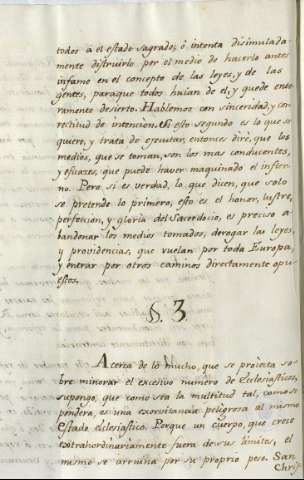 todos à el estado sagrado; ó intenta disimulada-
mente distruirlo por el medio de hacerlo antes
infame en el concepto de las leyes, y de las
gentes, paraque todos huian de el, y quede ente-
ramente desierto. Hablemos con sinceridad, y con
rectitud de intencion. Si esto segundo es lo que se
quere, y trata de executar, entonces diré, que los
medios, que se toman, son los mas conducentes,
y eficaces, que puede haver maquinado el infier-
no. Pero si es verdad, lo que dicen, que solo
se pretende lo primero, esto es el honor, lustre,
perfeccion, y gloria del Sacerdocio, es preciso a-
bandonar los medios tomados, derogar las leyes,
y providencias, que vuelan por toda Europa,
y entrar por otros caminos directamente opu-
estos.
§. 3
Acerca de lo mucho, que se projecta so-
bre minorar el excesivo numero de Eclesiasticos,
supongo, que como sea la multitud tal, como se
pondera, es una exorvitancia peligrosa al mismo
estado eclesiastico. Porque un cuerpo, que crece
extrahordinariamente fuera de sus limites, el
mismo se arruina por su proprio peso. San
Chris